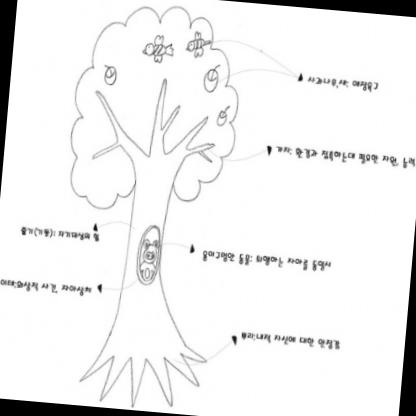 사과나무,새: 애정욕구
가지: 환경과 접촉하는데 필요한 자원, 능력
줄기(기둥): 자기대상의 힘
동물: 퇴행하는 자아를 동일시
사건, 자아상처
뿌리:내적 자신에 대한 안정감